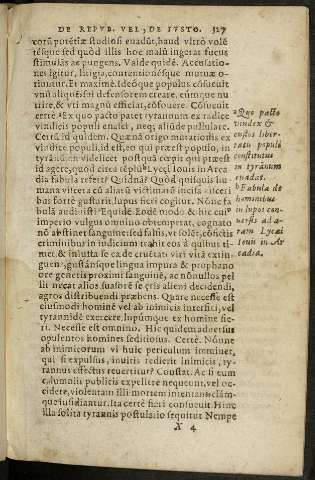 DE REPVB. VEL, DE IVSTO. 327
corū potētiæ studiosi euadūt, haud vltrò volē
tésque sed quòd illis hoc malū ingerat fucus
stimulās ac pungens. Valde quidē. Accusatio-
nes igitur, litigia, contentionésque mutuæ o-
riūtur. Et maximè. Ideóque populus cōsueuit
vnū aliquē sibi defensorem creare, eúmque nu
trire, & vti magnū efficiat, cōfouere. Cōsueuit
certè ᵃ Ex quo pacto patet tyrannum ex radice
vindicis populi enasci, neq; aliūde pullulare.
Certū id quidem. Quæ nā origo mutationis ex
vindice populi, id est, ex eo qui præest populo, in
tyrānū an videlicet postquā cœpit qui præest
id agere, quod circa tēplū ᵇ Lycęi Iouis in Arca
dia fabula refert? Quidnā? Quòd quisquis hu
mana viscera cū aliarū victimarū incisa visceri
bus fortè gustarit, lupus fieri cogitur. Nōne fa
bulā audiuisti? Equidē. Eodē modo & hic cui
imperio vulgus omnino obtemperat, cognato
nō abstinet sanguine: sed falsis, vt solēt, cōfictis
criminibus in iudicium trahit eos à quibus ti-
met, & iniusta se cæde cruētat: viri vitā extin
guens, gustánsque lingua impura & prophano
ore generis proximi sanguinē, ac nōnullos pel
lit necat alios suasorē se ęris alieni decidendi,
agros distribuendi præbens. Quare necesse est
eiusmodi hominē vel ab inimicis interfici, vel
tyrannidē exercere, lupúmque ex homine fie-
ri. Necesse est omnino. Hic quidem aduersus
opulentos homines seditiosus. Certè. Nónne
ab inimicorum vi huic periculum imminet,
qui si expulsus, inuitis redierit inimicis, ty-
rannus effectus reuertitur? Constat. Ac si eum
calumniis publicis expellere nequeunt, vel oc-
cidere, violentam illi mortem intentant clám-
que insidiantur. Ita certè fieri consueuit Hinc
illa solita tyrannis postulatio sequitur Nempe
X 4
ᵃ Quo pacto
vindex &
custos liber-
tatis populi
constitutus
in tyrānum
euadat.
ᵇ Fabula de
hominibus
in lupos con-
uersis ad a-
ram Lycæi
Iouis in Ar
cadia.